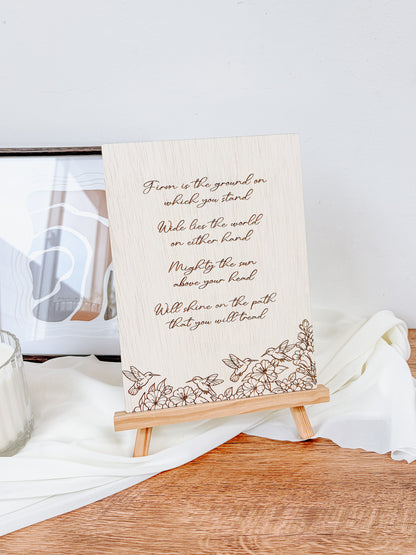 Firm is the ground on
which you stand
Wide lies the world
on either hand
Mighty the sun
above your head
Will shine on the path
that you will tread